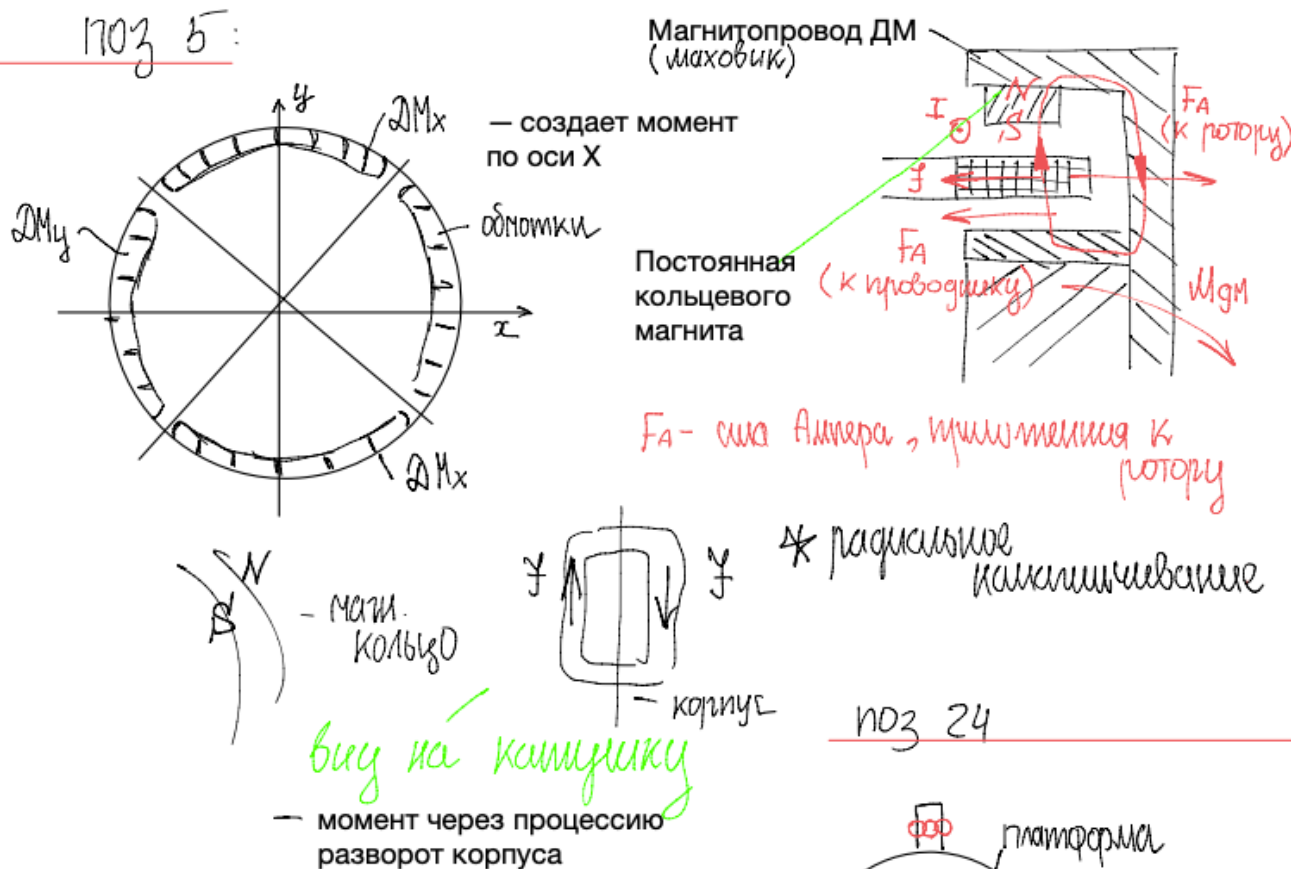 поз 5:
y
ДМx
— создает момент
по оси X
ДМy
обмотки
x
ДМx
Магнитопровод ДМ
(маховик)
N
S
I
FА
(к ротору)
J
FА
(к проводнику)
Постоянная
кольцевого
магнита
Mдм
FА - сила Ампера, приложенная к
ротору
N
S
- магн.
кольцо
J
J
- корпус
* радиальное
намагничивание
вид на катушку
— момент через процессию
разворот корпуса
поз 24
платформа